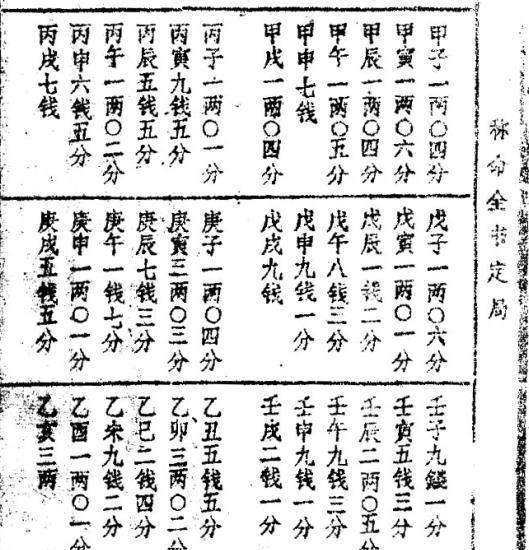 称命全书定局
甲子一两〇四分
甲寅一两〇六分
甲辰一两〇四分
甲午一两〇五分
甲申七钱
甲戌一两〇四分
丙子一两〇一分
丙寅九钱五分
丙辰五钱五分
丙午一两〇二分
丙申六钱五分
丙戌七钱
戊子一两〇六分
戊寅一两〇一分
戊辰一钱二分
戊午八钱三分
戊申九钱一分
戊戌九钱
庚子一两〇四分
庚寅三两〇三分
庚辰七钱三分
庚午一钱七分
庚申一两〇一分
庚戌五钱五分
壬子九钱一分
壬寅五钱三分
壬辰二两〇五分
壬午九钱三分
壬申九钱一分
壬戌二钱一分
乙丑五钱五分
乙卯三两〇二分
乙巳二钱四分
乙未九钱二分
乙酉一两〇一分
乙亥三两